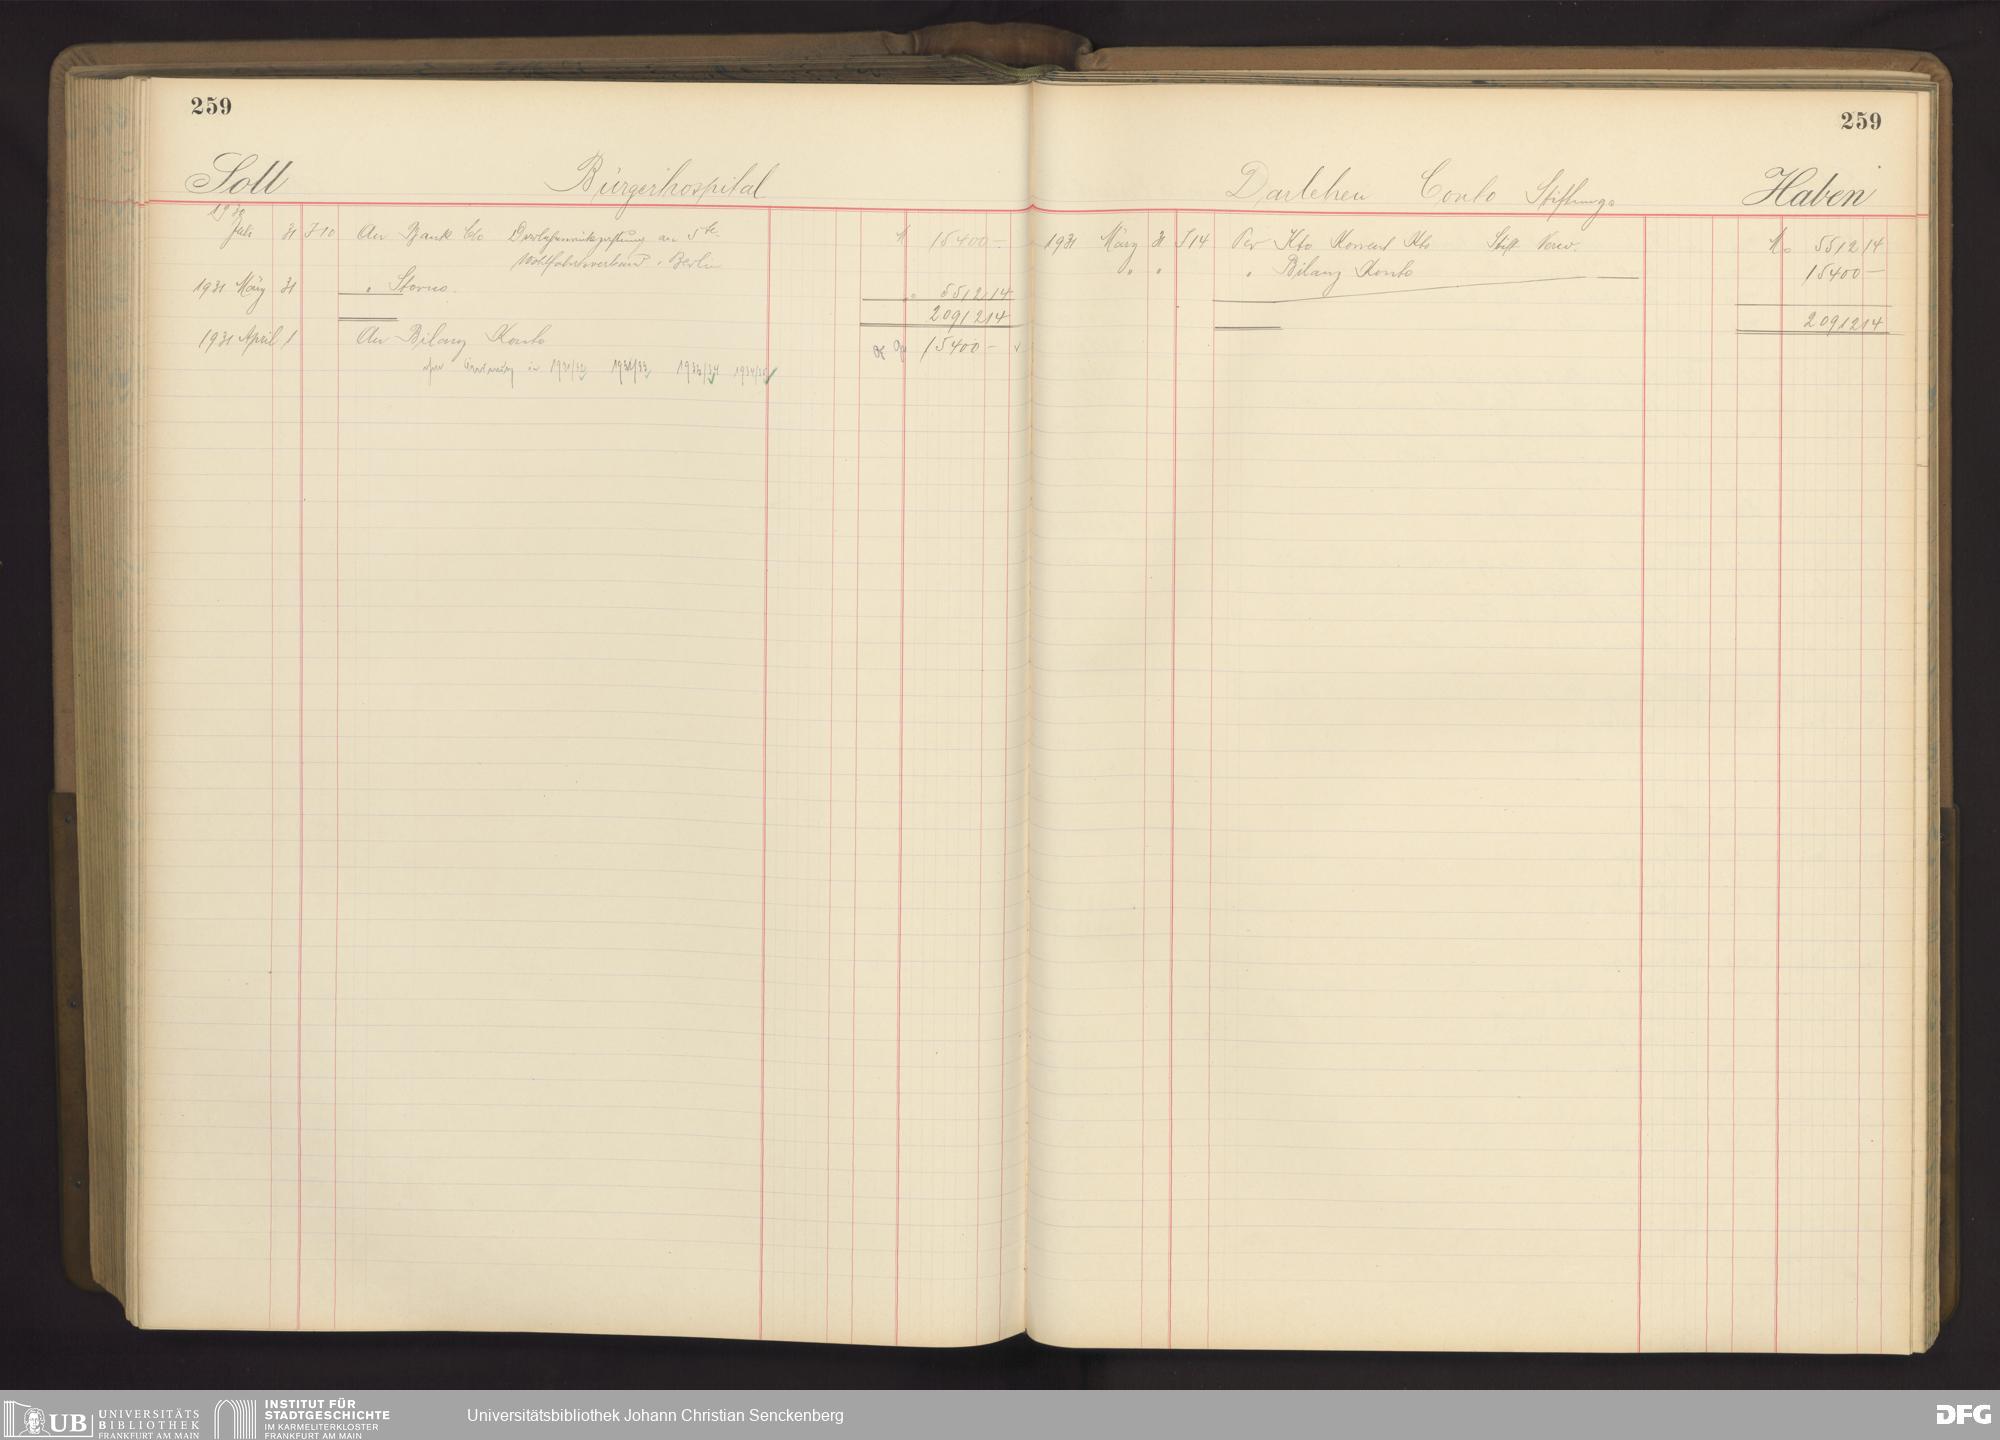 259
Soll Bürgerhospital
1930
Juli 31 J10 An Bank Cto Darlehensrückzahlung an 5te
Wohlfahrtsverband, Berlin M 15400 —
1931 März 31 " Storno " 5512 14
20912 14
1931 April 1 An Bilanz Konto 15400 —
in 1931/32 1932/33 1933/34 1934/35
259
Darlehen Conto Stiftungs Haben
1931 März 31 J14 Per Kto Korrent Kto Stift. Verw. M 5512 14
" " " Bilanz Konto 15400 —
20912 14
UB UNIVERSITÄTS
BIBLIOTHEK
FRANKFURT AM MAIN
INSTITUT FÜR
STADTGESCHICHTE
IM KARMELITERKLOSTER
FRANKFURT AM MAIN
Universitätsbibliothek Johann Christian Senckenberg
DFG